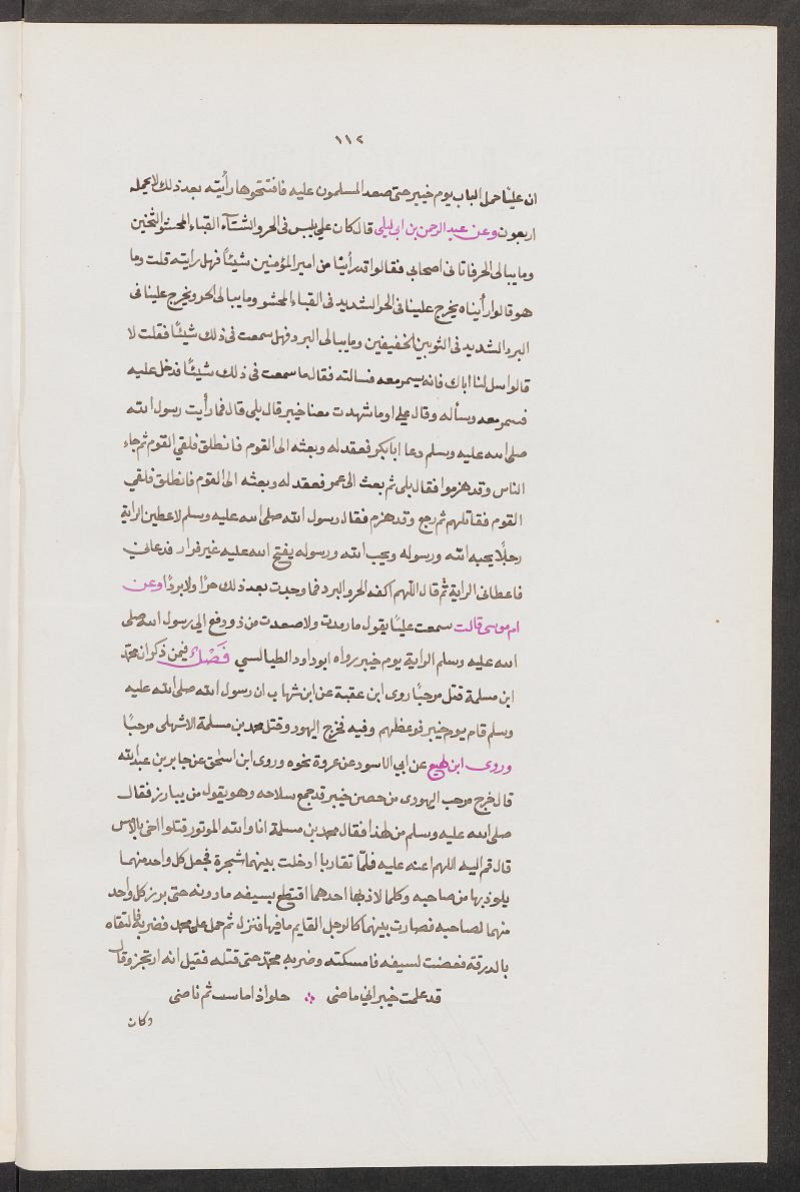 ١١٢
ان عليًا حمل الباب يوم خيبر حتى صعد المسلمون عليه فافتتحوها رأيته بعد ذلك لا يحمله
اربعون وعن عبد الرحمن بن ابي ليلى قال كان علي يلبس في الحر والشتآء القباء المحشو الثخين
وما يبالي الحر فاتانى اصحابى فقالوا قد رأينا من امير المؤمنين شيئًا فهل رايته قلت وما
هو قالوا رأيناه يخرج علينا فى الحر الشديد فى القباء المحشو وما يبالى الحر ويخرج علينا فى
البرد الشديد فى الثوبين الخفيفين وما يبالى البرد فهل سمعت فى ذلك شيئًا فقلت لا
قالوا سل لنا اباك فانه يسمر معه فسالته فقال ما سمعت فى ذلك شيئًا فدخل عليه
فسمر معه وسأله وقال علي اوما شهدت معنا خيبر قال بلى قال فما رأيت رسول الله
صلى الله عليه وسلم دعا ابا بكر فعقد له وبعثه الى القوم فانطلق فلقي القوم ثم جاء
الناس وقد هزموا فقال بلى ثم بعث الى عمر فعقد له وبعثه الى القوم فانطلق فلقي
القوم فقاتلهم ثم رجع وقد هزم فقال رسول الله صلى الله عليه وسلم لاعطين الراية
رجلًا يحبه الله ورسوله ويحب الله ورسوله يفتح الله عليه غير فرار فدعاني
فاعطانى الراية ثم قال اللهم اكفه الحر والبرد فما وجدت بعد ذلك حرًا ولا بردًا وعن
ام موسى قالت سمعت عليًا يقول ما رمدت ولا صعدت من ذو دفع الي رسول الله صلى
الله عليه وسلم الراية يوم خيبر رواه ابو داود الطيالسي فَصْل فيمن ذكر ان محمد
ابن مسلمة قتل مرحبًا روى ابن عقبة عن ابن شهاب ان رسول الله صلى الله عليه
وسلم قام يوم خيبر فوعظهم وفيه فخرج اليهود وقتل محمد بن مسلمة الاشهلى مرحبًا
وروى ابن لهيع عن ابي الاسود عن عروة نحوه وروى ابن اسحٰق عن جابر بن عبد الله
قال خرج مرحب اليهودى من حصن خيبر قد جمع سلاحه وهو يقول من يبارز فقال
صلى الله عليه وسلم من لهذا فقال محمد بن مسلمة انا والله الموتور قتلوا اخى بالامس
قال قم اليه اللهم اعنه عليه فلمّا تقاربا دخلت بينهما شجرة فجعل كل واحد منهما
يلوذ بها من صاحبه وكلما لاذ بها احدهما اقتطع بسيفه ما دونه حتى برز كل واحد
منهما لصاحبه فصارت بينهما كالرجل القايم ما فيها فنزل ثم حمل على محمد فضربه فالتقاه
بالدرقة فعضت لسيفه فامسكته وضربه محمد حتى قتله فقيل انه ارتجز وقال
قد علمت خيبر اني ماضى حلو اذا ما ثم ناضى
وكان